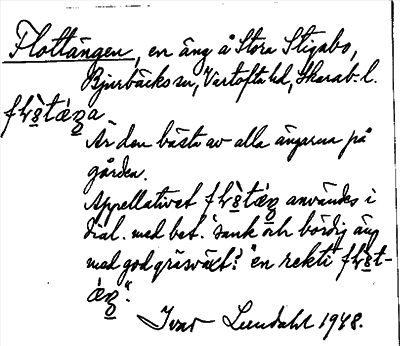 Flottängen, en äng å Stora Stigabo,
Bjurbäcks sn, Vartofta hd, Skarab. l.
Är den bästa av alla ängarna på
gården.
Appellativet användes i
dial. med bet. "sank och bördig äng
med god gräsväxt". "en rekti
Ivar Lundahl 1948.